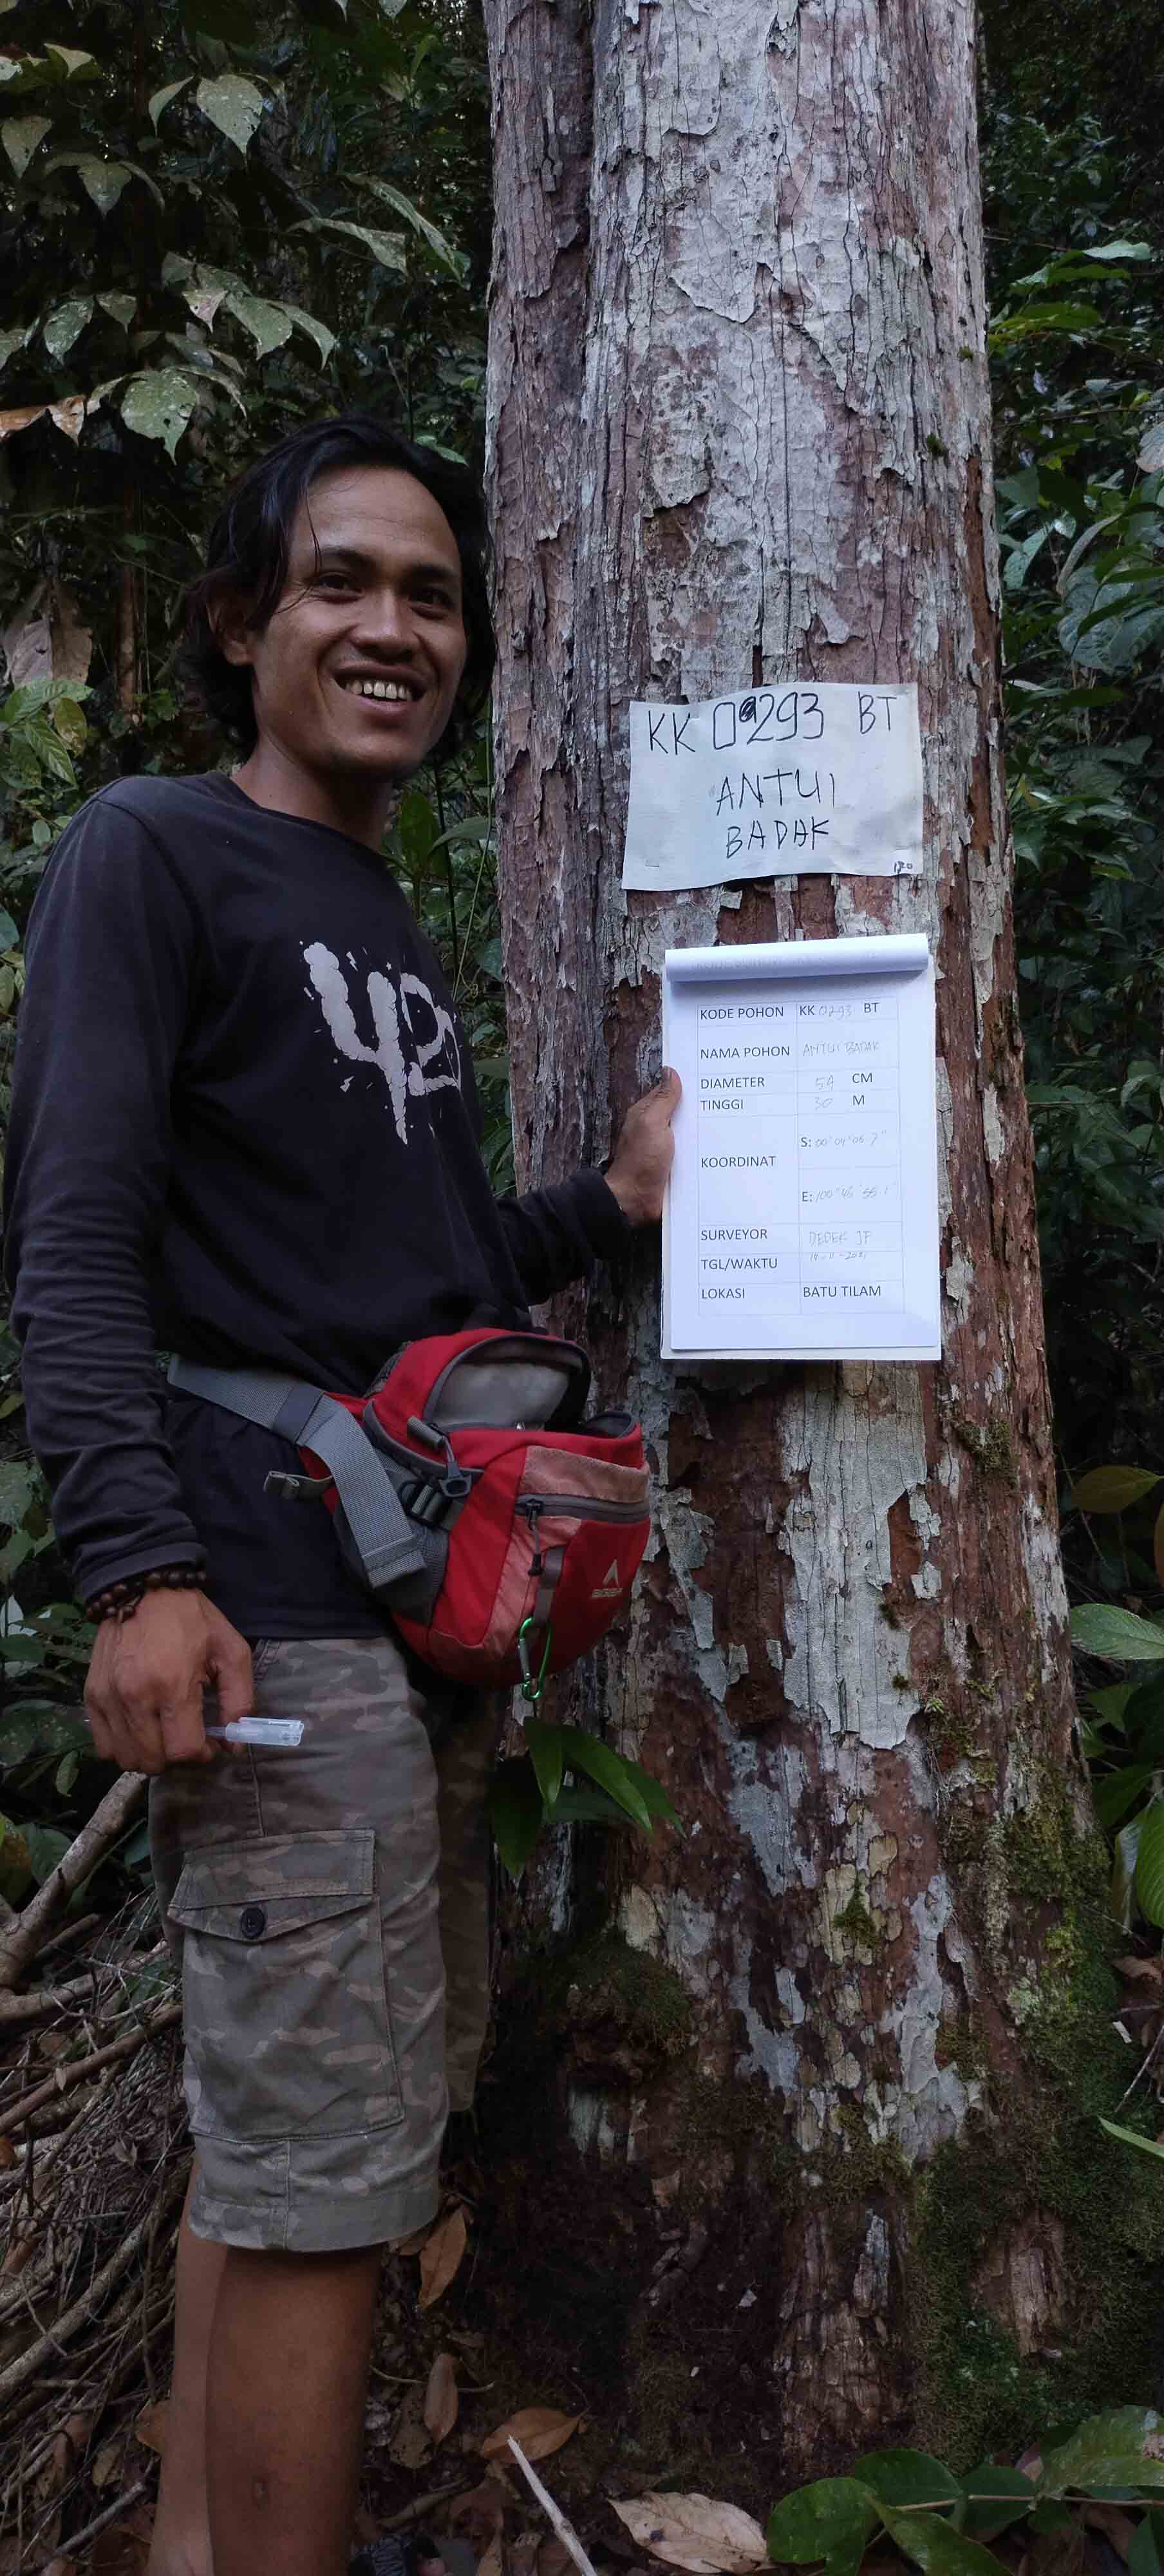 KK 0293 BT
ANTUI
BADAK
120
420
KODE POHON KK 0293 BT
NAMA POHON ANTUI BADAK
DIAMETER 54 CM
TINGGI 30 M
KOORDINAT
S: 00° 04' 06 7"
E: 100° 46' 55 1"
SURVEYOR DEDEK JP
TGL/WAKTU
LOKASI BATU TILAM
EIGER